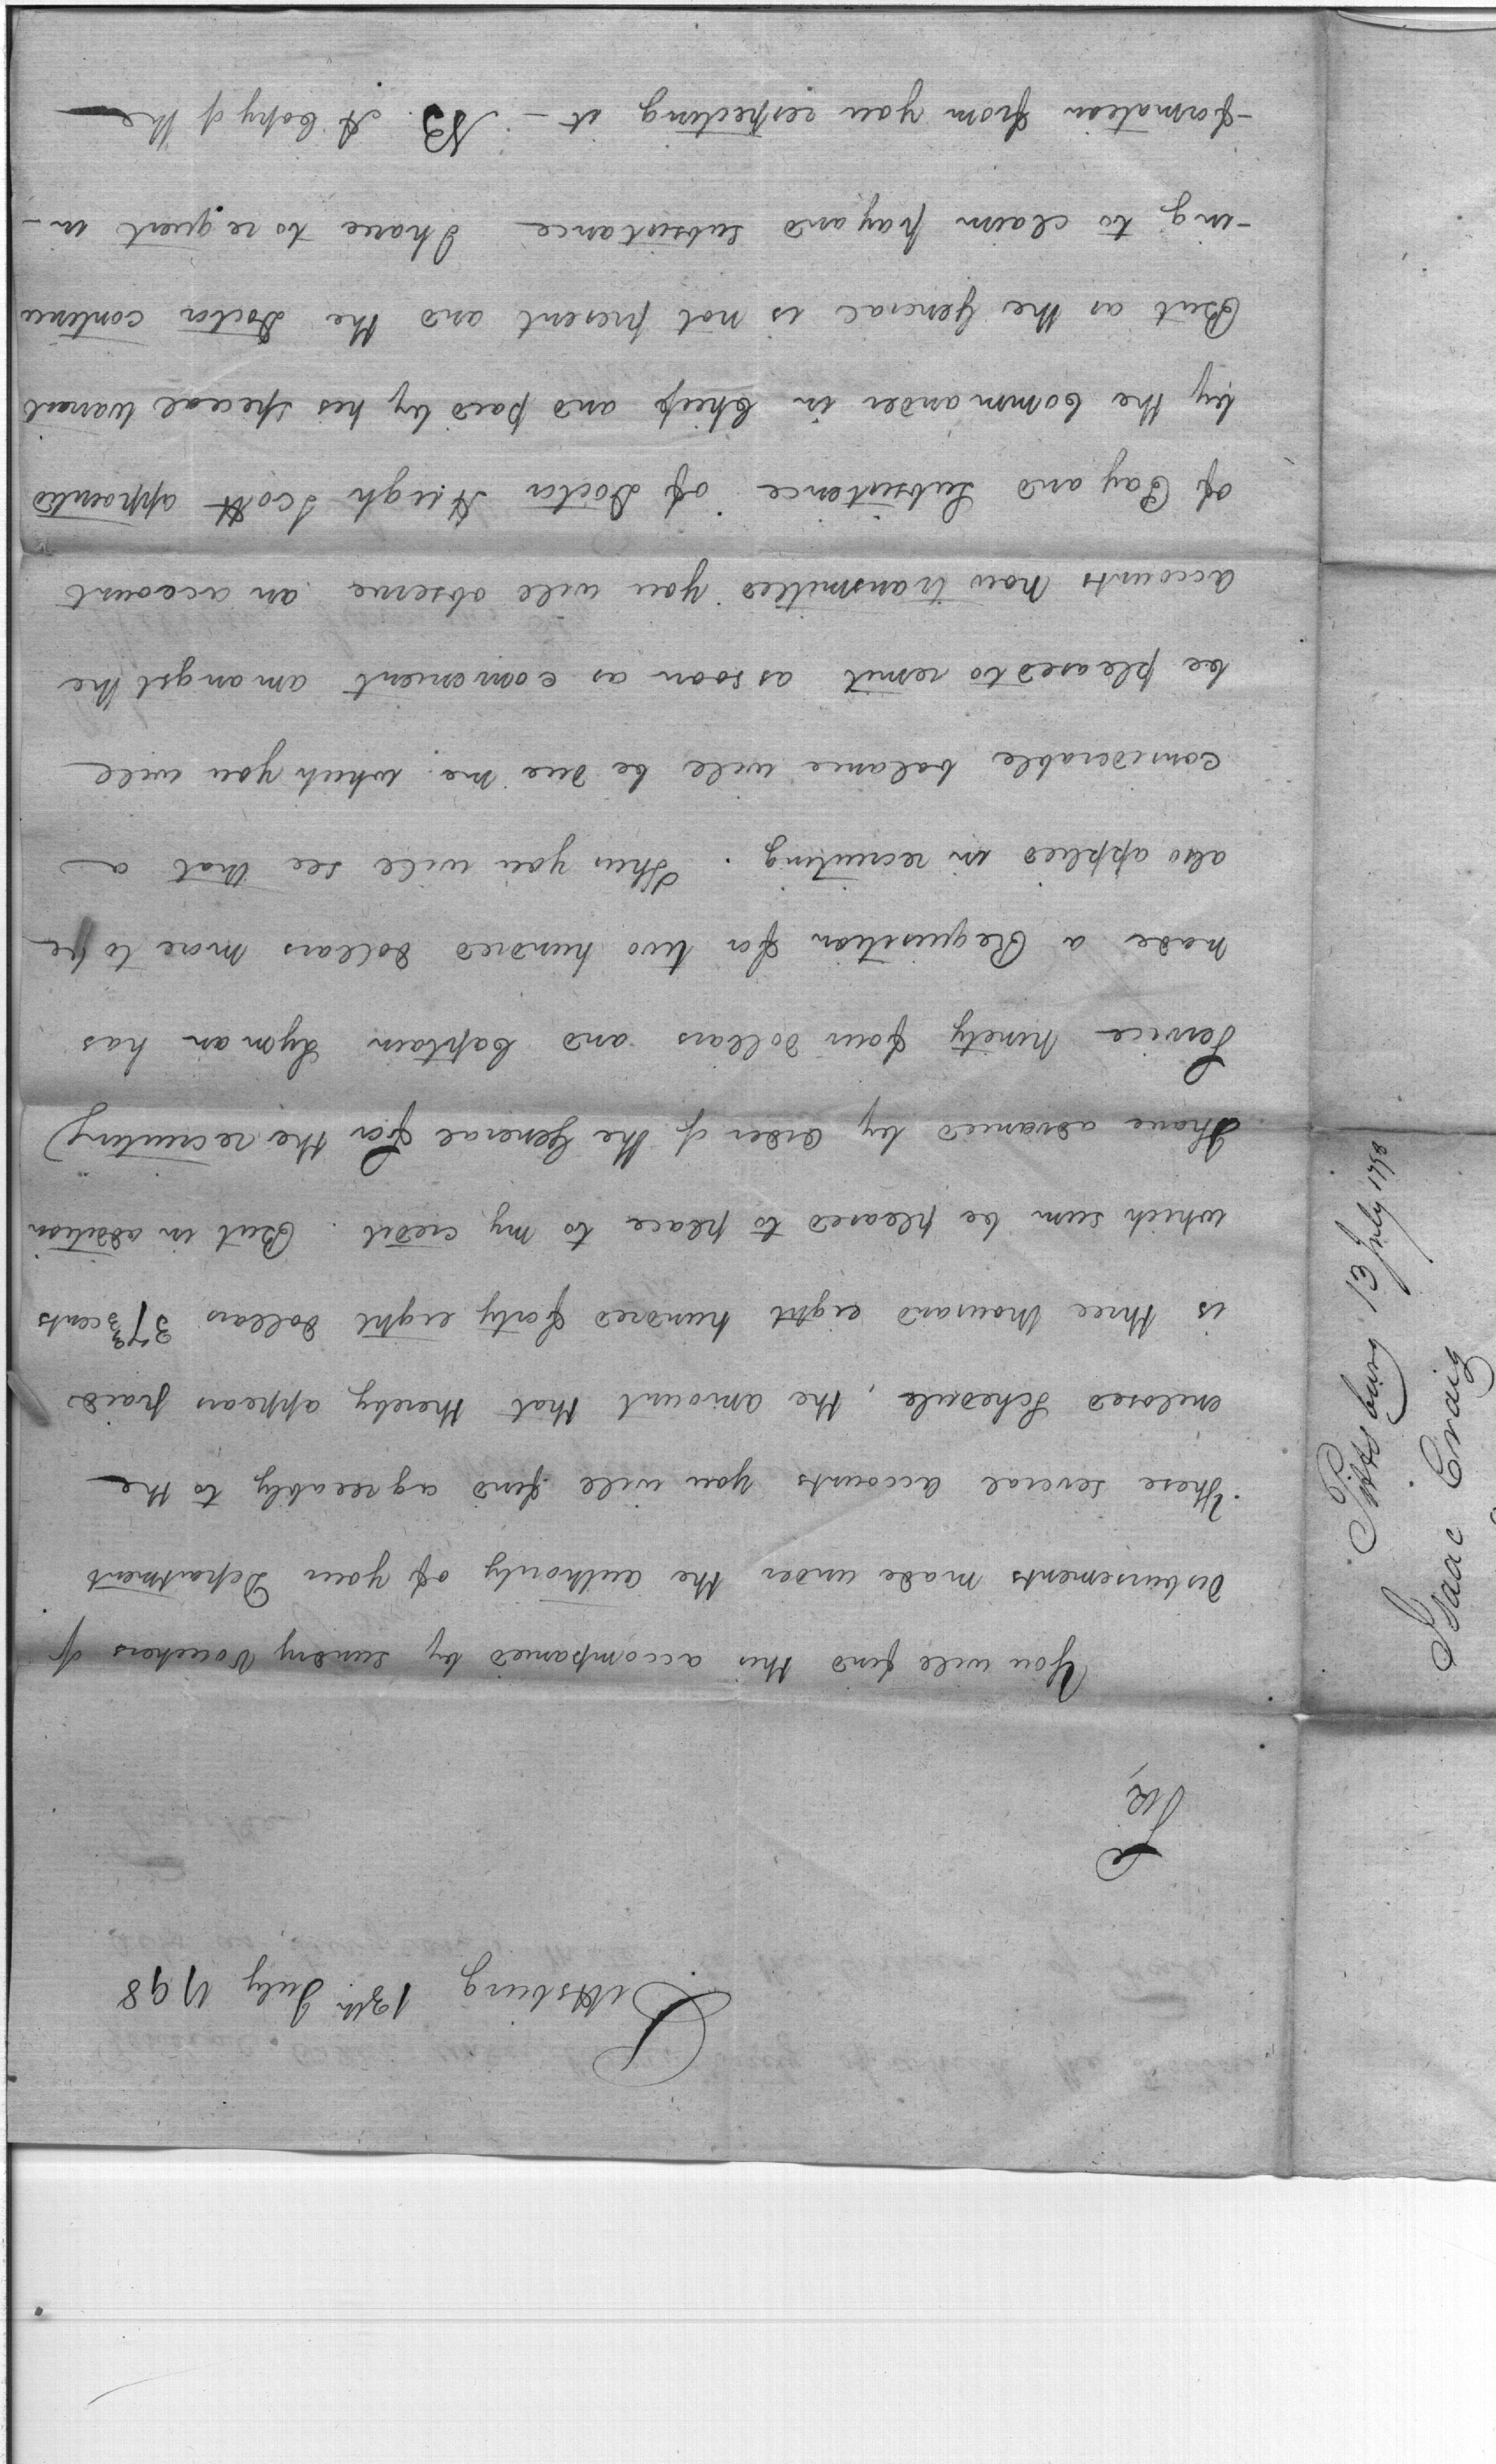 Pittsburg 13th July 1798
Sir,
You will find this accompanied by sundry Vouchers of
disbursements made under the authority of your Department
These several accounts you will find agreeably to the
enclosed Schedule, the amount that thereby appears paid
is three thousand eight hundred forty eight dollars 37 2/3 cents
which sum be pleased to place to my credit. But in addition
I have advanced by order of the General for the recruiting
Service ninety four dollars and Captain Lyman has
made a Requisition for two hundred dollars more to be
also applied in recruiting. Thus you will see that a
considerable balance will be due me which you will
be pleased to remit as soon as convenient amongst the
accounts now transmitted you will observe an account
of Pay and Subsistence of Doctor Hugh Scott appointed
by the Commander in Chief and paid by his special Warrant
But as the General is not present and the Doctor continu
-ing to claim pay and subsistance I have to request in-
-formation from you respecting it - NB. A Copy of the
Pittsburg 13 July 1798
Isaac Craig